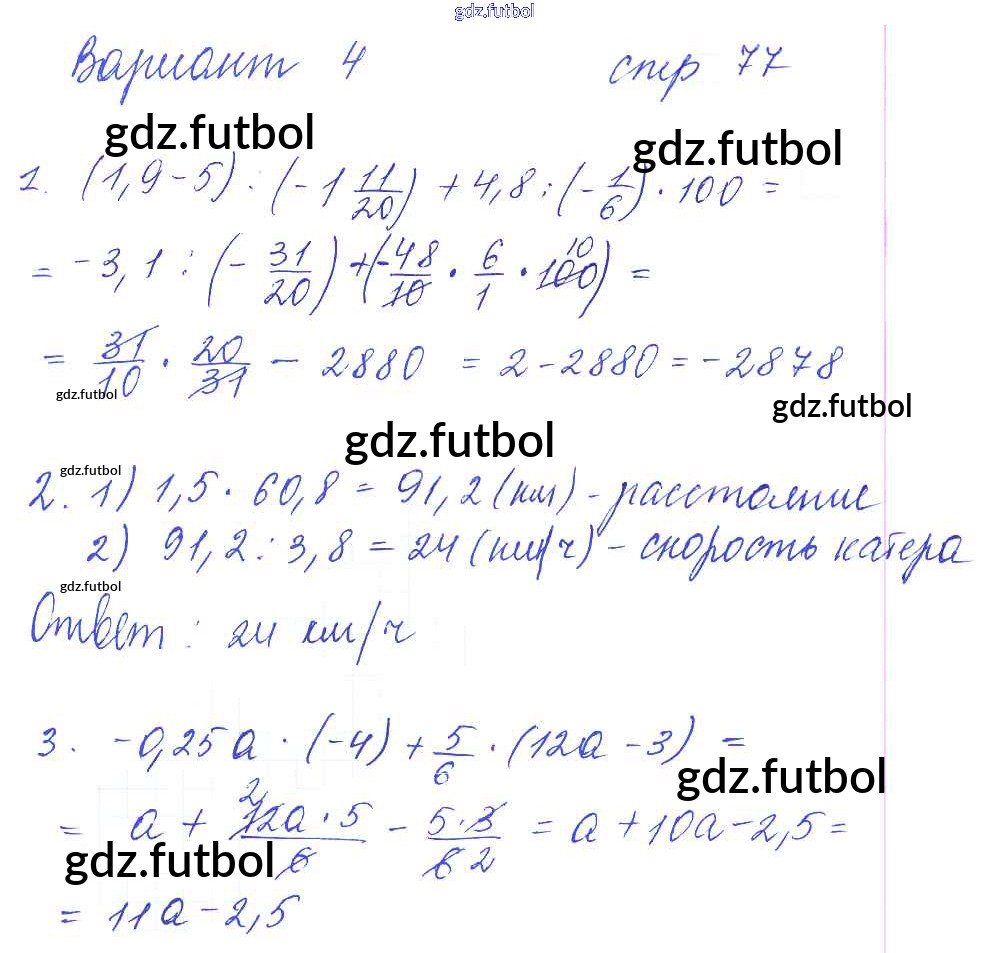 gdz.futbol
Вариант 4 стр 77
gdz.futbol gdz.futbol
1. (1,9 - 5) : (-1 11/20) + 4,8 : (-1/6) · 100 =
= -3,1 : (-31/20) + (-48/10 · 6/1 · 100 10) =
= 31/10 · 20/31 - 2880 = 2 - 2880 = -2878
gdz.futbol gdz.futbol
gdz.futbol
gdz.futbol
2. 1) 1,5 · 60,8 = 91,2 (км) - расстояние
2) 91,2 : 3,8 = 24 (км/ч) - скорость катера
gdz.futbol
Ответ : 24 км/ч
3. -0,25а · (-4) + 5/6 · (12а - 3) =
gdz.futbol
= а + 2 12а · 5/6 - 5 · 3/6 2 = а + 10а - 2,5 =
gdz.futbol
= 11а - 2,5